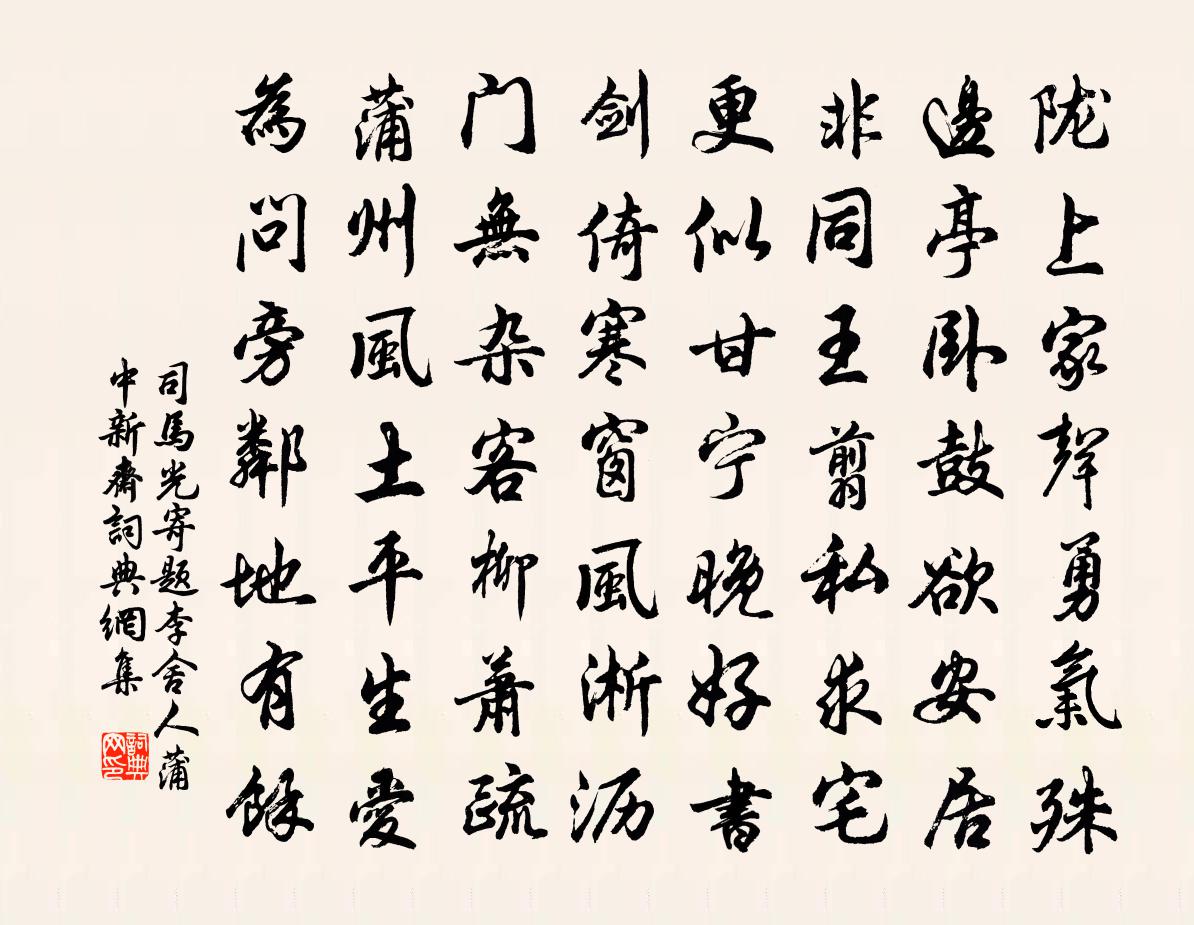 陇上家聲勇氣殊
邊亭卧鼓欲安居
非同王翦私求宅
更似甘宁晚好書
剑倚寒窗風淅沥
门無杂客柳蕭疏
蒲州風土平生愛
為问旁鄰地有餘
司馬光寄题李舍人蒲
中新齋詞典網集
詞典网印